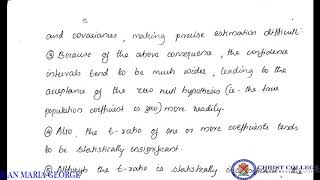 and covariances, making precise estimation difficult.
③ Because of the above consequence, the confidence
intervals tend to be much wider, leading to the
acceptance of the zero null hypothesis (i.e. the true
population coefficient is zero) more readily.
④ Also, the t-ratio of one or more coefficients tends
to be statistically insignificant.
⑤ Although the t-ratio is statistically
AN MARIA GEORGE
CHRIST COLLEGE